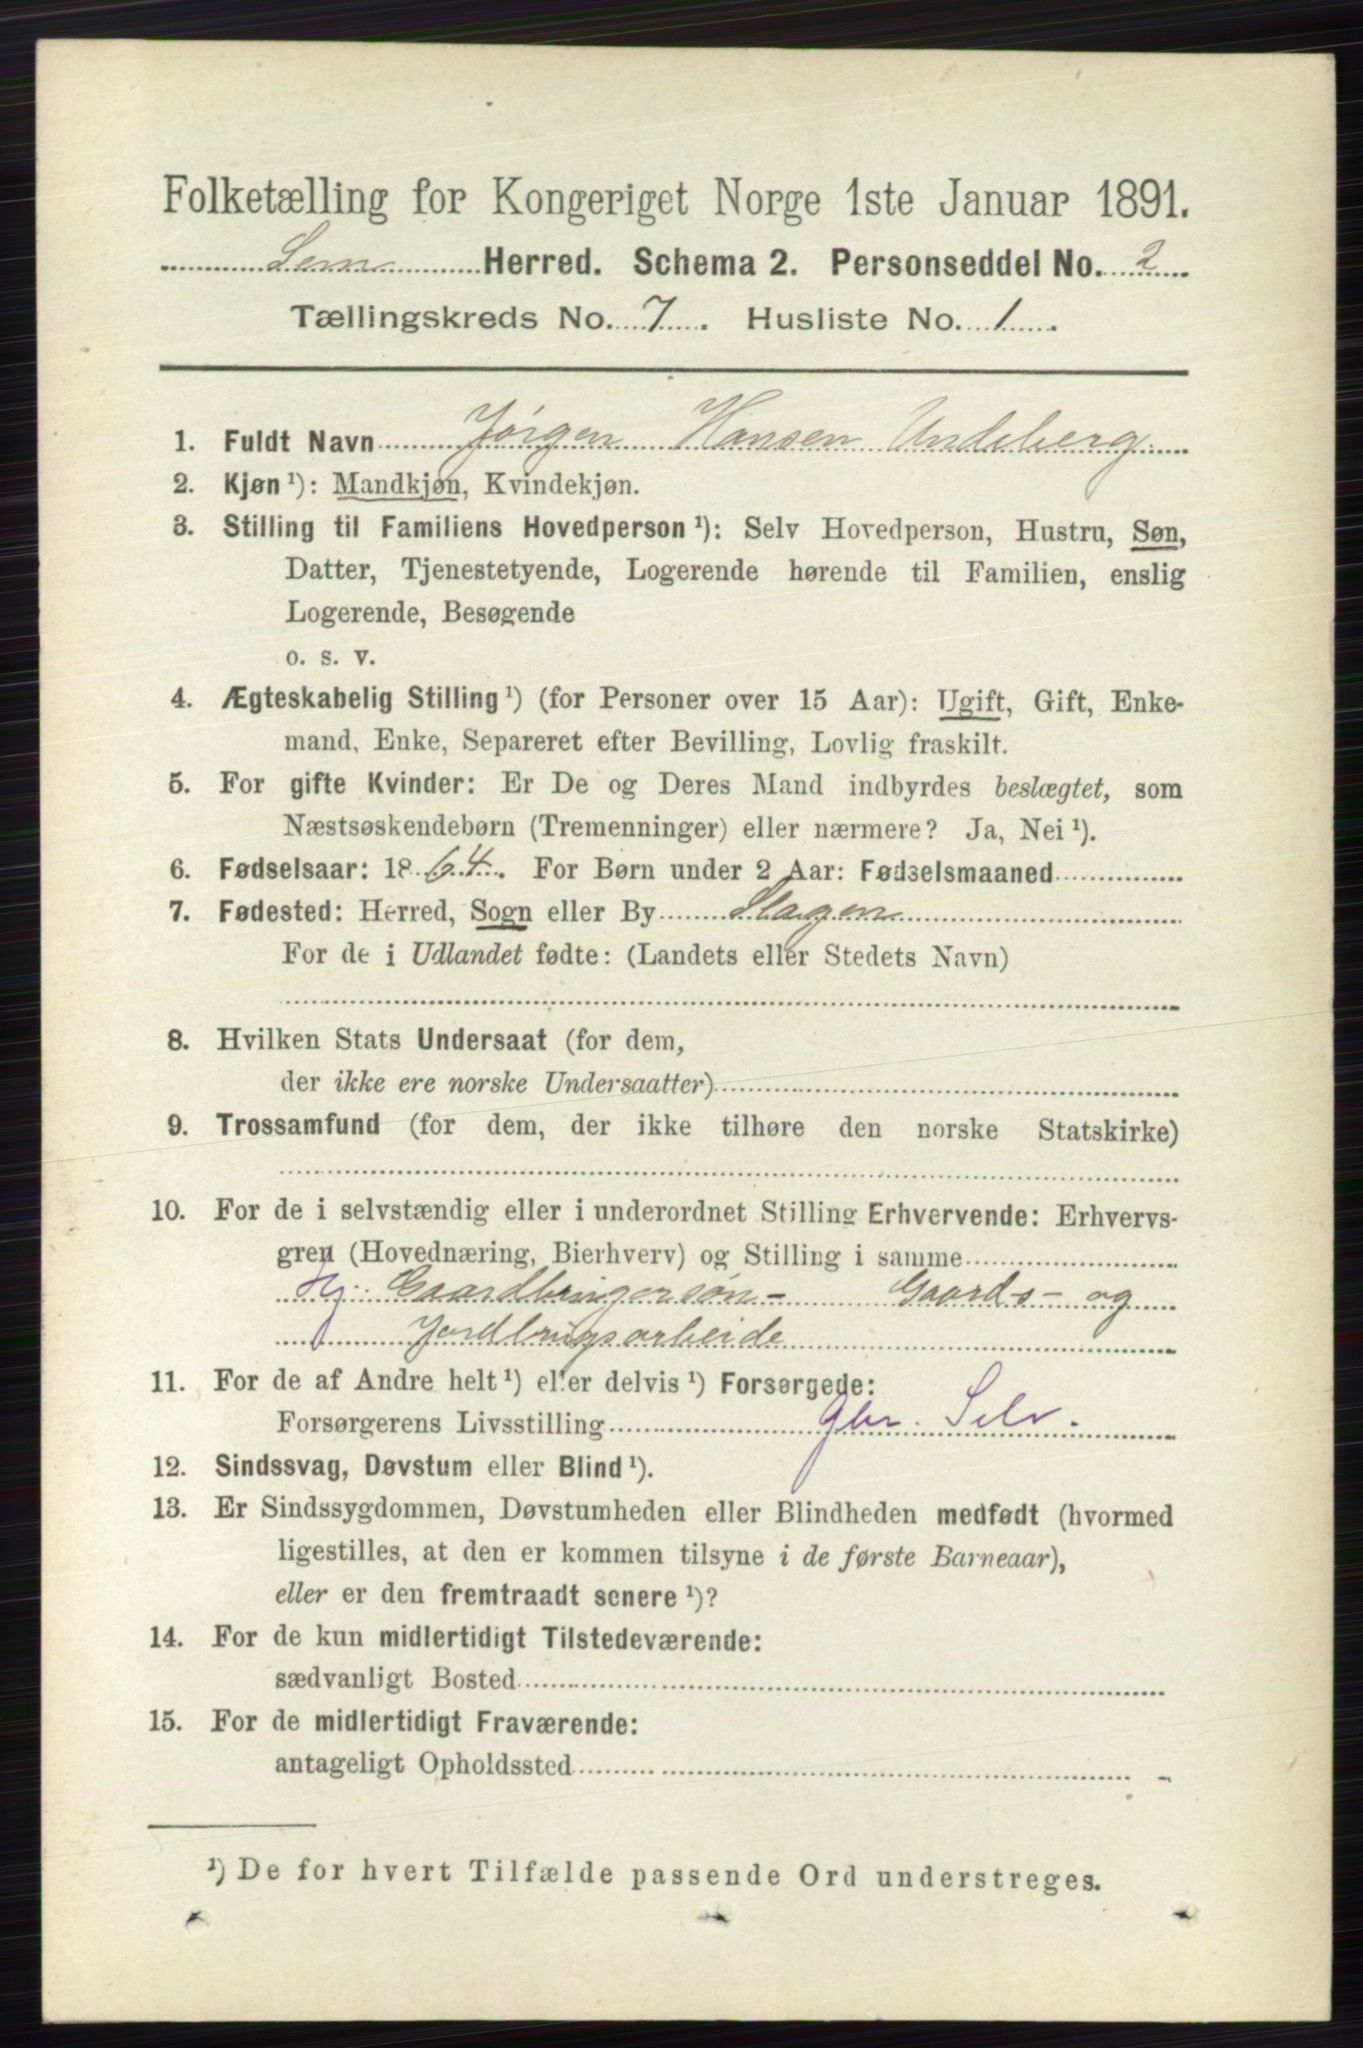 Folketælling for Kongeriget Norge 1ste Januar 1891.
Sem Herred. Schema 2. Personseddel No. 2
Tællingskreds No. 7. Husliste No. 1
1. Fuldt Navn Jørgen Hansen Undeberg
2. Kjøn ¹): Mandkjøn, Kvindekjøn.
3. Stilling til Familiens Hovedperson ¹): Selv Hovedperson, Hustru, Søn,
Datter, Tjenestetyende, Logerende hørende til Familien, enslig
Logerende, Besøgende
o. s. v.
4. Ægteskabelig Stilling ¹) (for Personer over 15 Aar): Ugift, Gift, Enke-
mand, Enke, Separeret efter Bevilling, Lovlig fraskilt.
5. For gifte Kvinder: Er De og Deres Mand indbyrdes beslægtet, som
Næstsøskendebørn (Tremenninger) eller nærmere? Ja, Nei ¹).
6. Fødselsaar: 1864. For Børn under 2 Aar: Fødselsmaaned
7. Fødested: Herred, Sogn eller By Slagen
For de i Udlandet fødte: (Landets eller Stedets Navn)
8. Hvilken Stats Undersaat (for dem,
der ikke ere norske Undersaatter)
9. Trossamfund (for dem, der ikke tilhøre den norske Statskirke)
10. For de i selvstændig eller i underordnet Stilling Erhvervende: Erhvervs-
gren (Hovednæring, Bierhverv) og Stilling i samme
Hj. Gaardbrugersøn - Gaards- og
Jordbrugsarbeide
11. For de af Andre helt ¹) eller delvis ¹) Forsørgede:
Forsørgerens Livsstilling Gbr. Selv.
12. Sindssvag, Døvstum eller Blind ¹).
13. Er Sindssygdommen, Døvstumheden eller Blindheden medfødt (hvormed
ligestilles, at den er kommen tilsyne i de første Barneaar),
eller er den fremtraadt senere ¹)?
14. For de kun midlertidigt Tilstedeværende:
sædvanligt Bosted
15. For de midlertidigt Fraværende:
antageligt Opholdssted
¹) De for hvert Tilfælde passende Ord understreges.